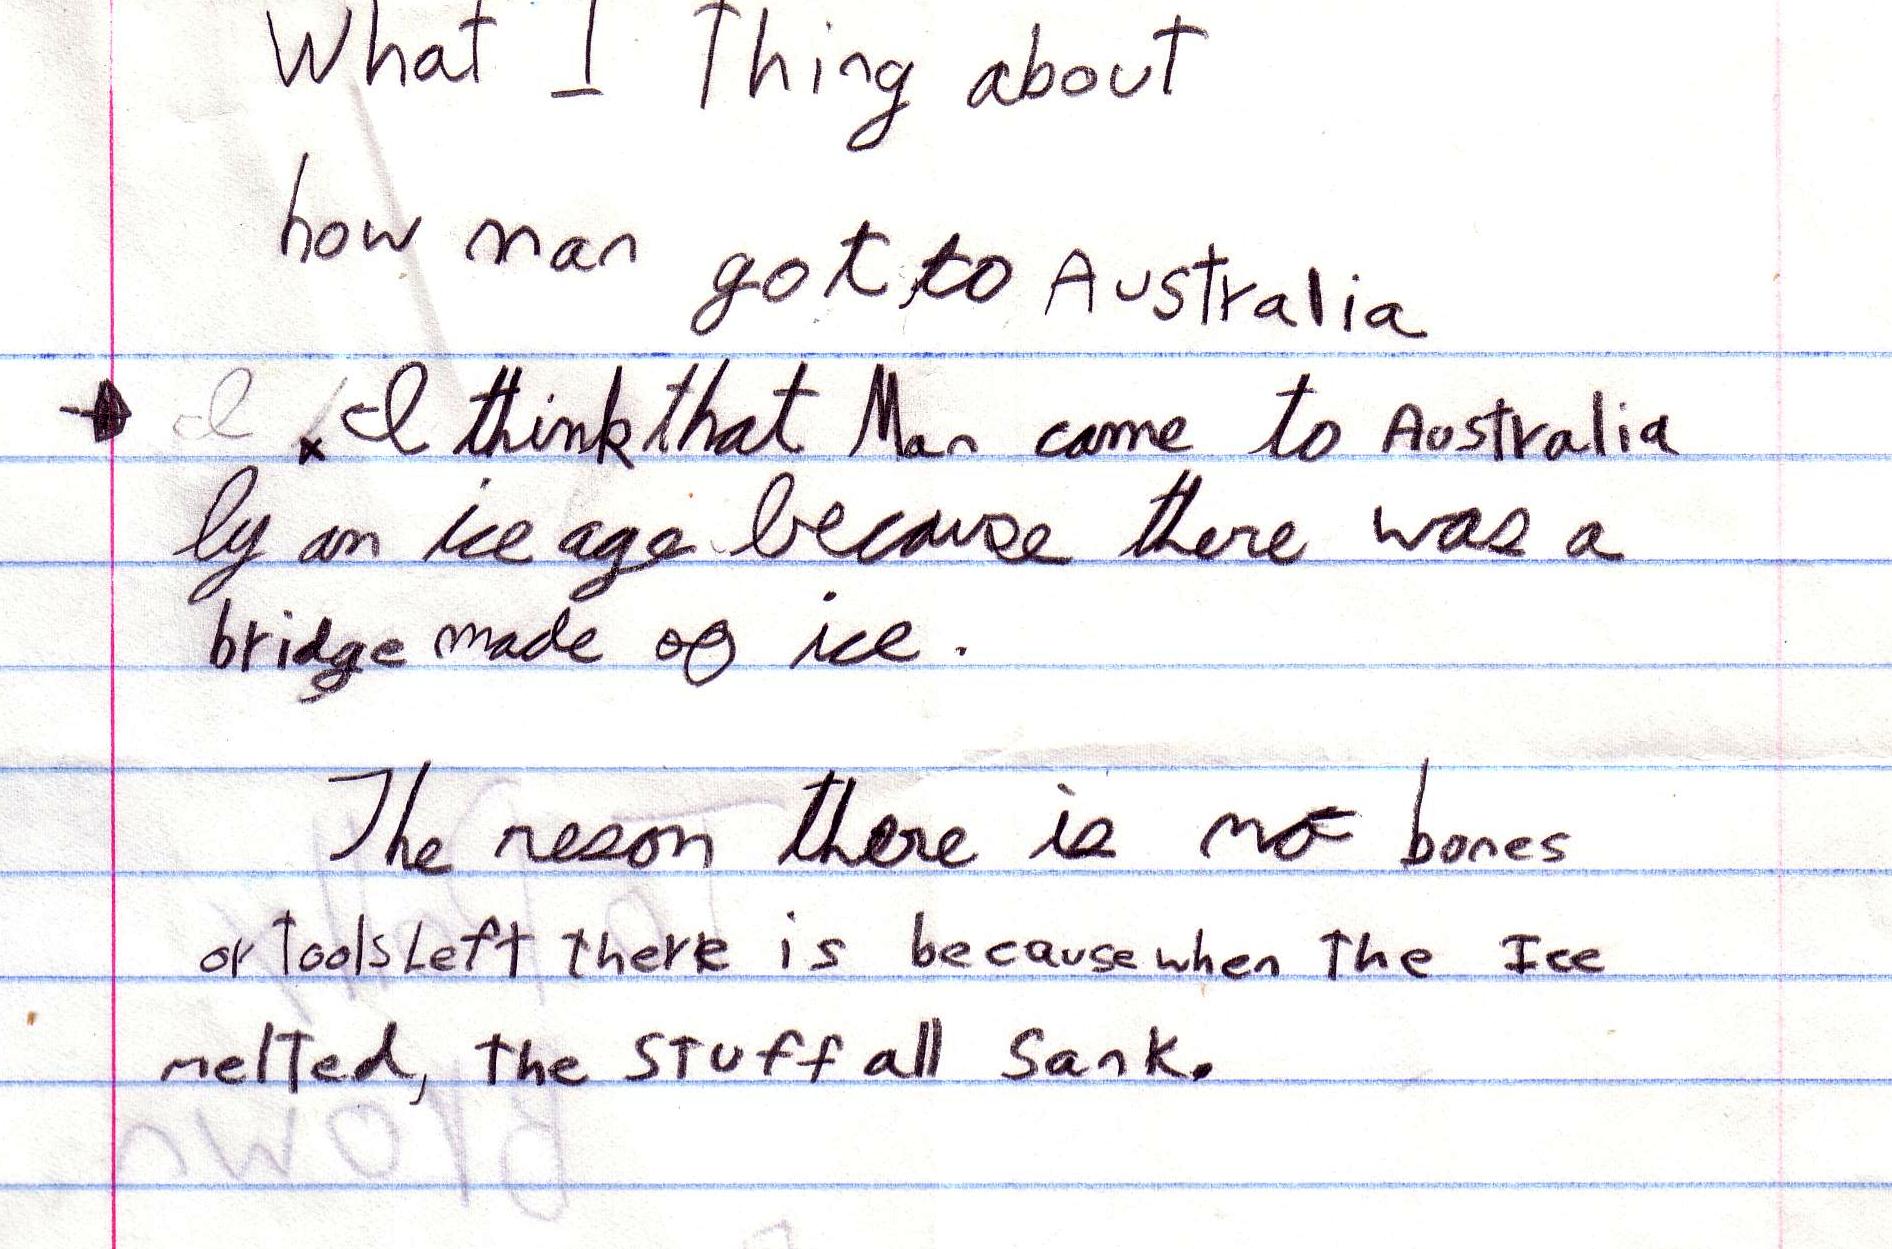 What I Thing about
how man got to Australia
I think that Man came to Australia
by an ice age because there was a
bridge made of ice.
The reson there is no bones
or tools Left there is because when The Ice
melted, the Stuff all Sank.
Brown